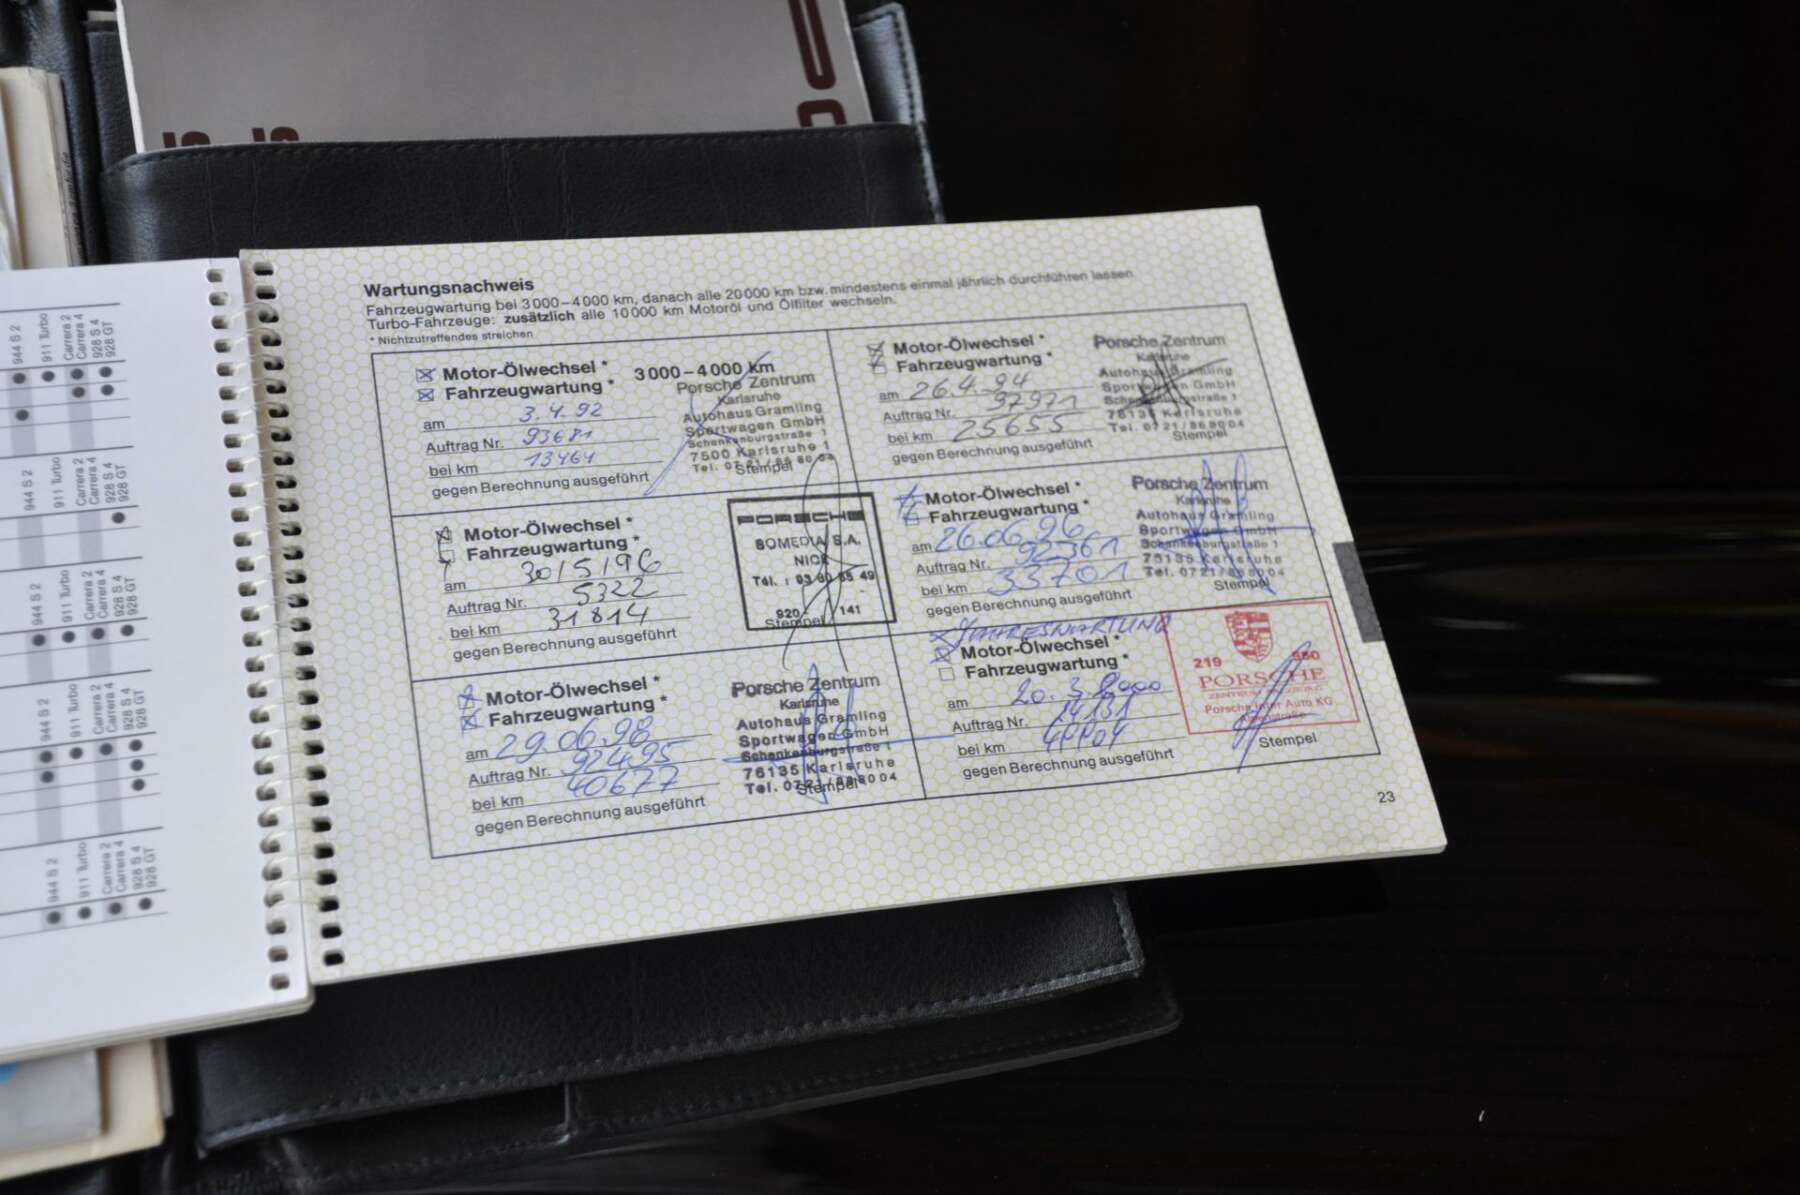 Wartungsnachweis
Fahrzeugwartung bei 3000–4000 km, danach alle 20000 km bzw. mindestens einmal jährlich durchführen lassen.
Turbo-Fahrzeuge: zusätzlich alle 10000 km Motoröl und Ölfilter wechseln.
* Nichtzutreffendes streichen
Motor-Ölwechsel *
Fahrzeugwartung * 3000–4000 km
am 3.4.92
Auftrag Nr. 93681
bei km 13464
gegen Berechnung ausgeführt
Porsche Zentrum
Karlsruhe
Autohaus Gramling
Sportwagen GmbH
Schenkenburgstraße 1
7500 Karlsruhe 1
Tel. 0721/86 80 04
Stempel
Motor-Ölwechsel *
Fahrzeugwartung *
am 26.4.94
Auftrag Nr. 97971
bei km 25655
gegen Berechnung ausgeführt
Porsche Zentrum
Karlsruhe
Autohaus Gramling
Sportwagen GmbH
Schenkenburgstraße 1
76135 Karlsruhe
Tel. 0721/868004
Stempel
Motor-Ölwechsel *
Fahrzeugwartung *
am 30/5/96
Auftrag Nr. 5322
bei km 31814
gegen Berechnung ausgeführt
PORSCHE
SOMEDIA S.A.
NICE
Tél. : 93 80 55 49
920 141
Stempel
Motor-Ölwechsel *
Fahrzeugwartung *
am 26.06.96
Auftrag Nr. 92361
bei km 33701
gegen Berechnung ausgeführt
Porsche Zentrum
Karlsruhe
Autohaus Gramling
Sportwagen GmbH
Schenkenburgstraße 1
76135 Karlsruhe
Tel. 0721/868004
Stempel
Motor-Ölwechsel *
Fahrzeugwartung *
am 29.06.98
Auftrag Nr. 92495
bei km 40677
gegen Berechnung ausgeführt
Porsche Zentrum
Karlsruhe
Autohaus Gramling
Sportwagen GmbH
Schenkenburgstraße 1
76135 Karlsruhe
Tel. 0721/868004
Stempel
JAHRESWARTUNG
Motor-Ölwechsel *
Fahrzeugwartung *
am 20.3.2000
Auftrag Nr.
bei km
gegen Berechnung ausgeführt
219 580
PORSCHE
ZENTRUM
Porsche Inter Auto KG
Stempel
23
944 S 2
911 Turbo
Carrera 2
Carrera 4
928 S 4
928 GT
944 S 2
911 Turbo
Carrera 2
Carrera 4
928 S 4
928 GT
944 S 2
911 Turbo
Carrera 2
Carrera 4
928 S 4
928 GT
944 S 2
911 Turbo
Carrera 2
Carrera 4
928 S 4
928 GT
944 S 2
911 Turbo
Carrera 2
Carrera 4
928 S 4
928 GT